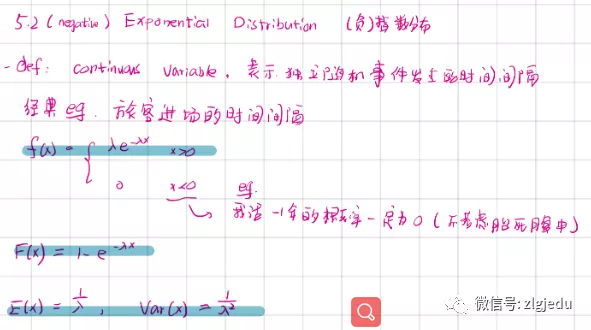 5.2 (negative) Exponential Distribution (负)指数分布
- def: continuous variable. 表示独立随机事件发生的时间间隔
经典 eg. 旅客进场的时间间隔
f(x) = { λe^{-λx} x>0
0 x<0 eg.
我活 -1年的概率一定为0 (不考虑胎死腹中)
F(x) = 1 - e^{-λx}
E(x) = 1/λ, Var(x) = 1/λ²
微信号: zlgjedu